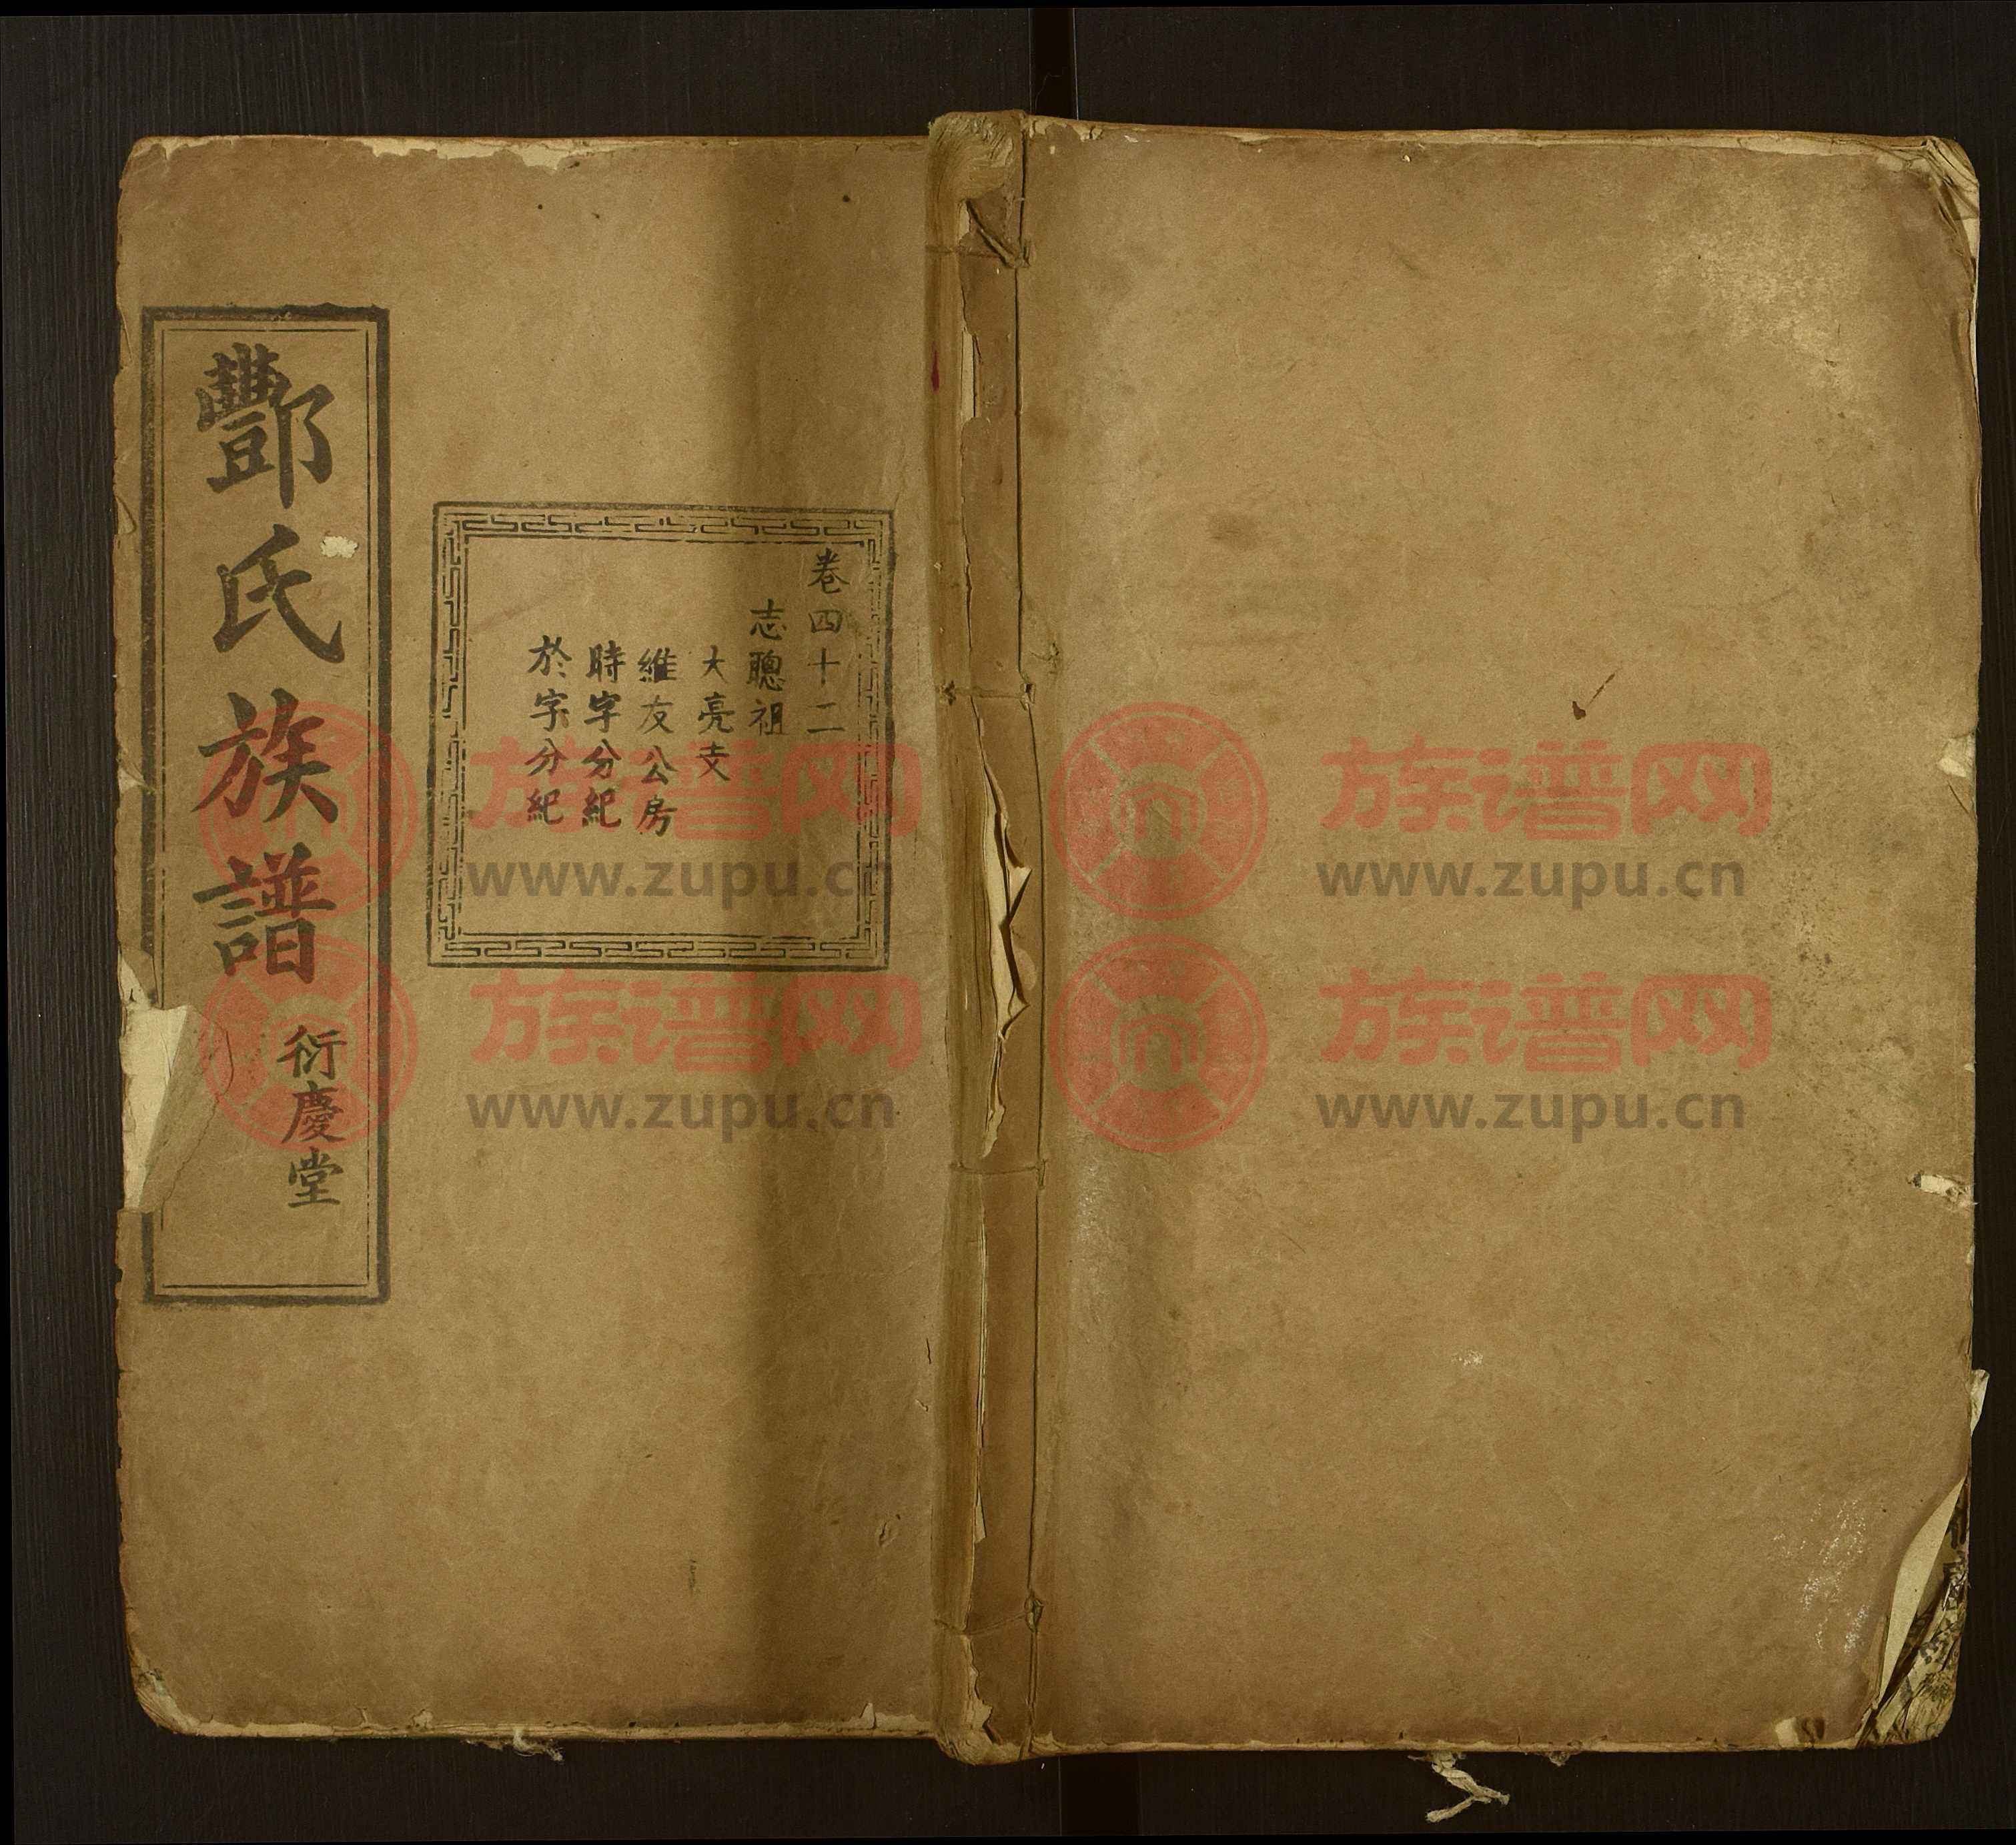 卷四十二
志聰祖
大亮支
維友公房
時字分紀
於字分紀
酆氏族譜 衍慶堂
族谱网
www.zupu.cn
族谱网
www.zupu.cn
族谱网
www.zupu.cn
族谱网
www.zupu.cn